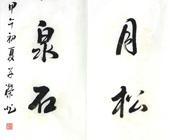 月松
泉石
甲午初夏